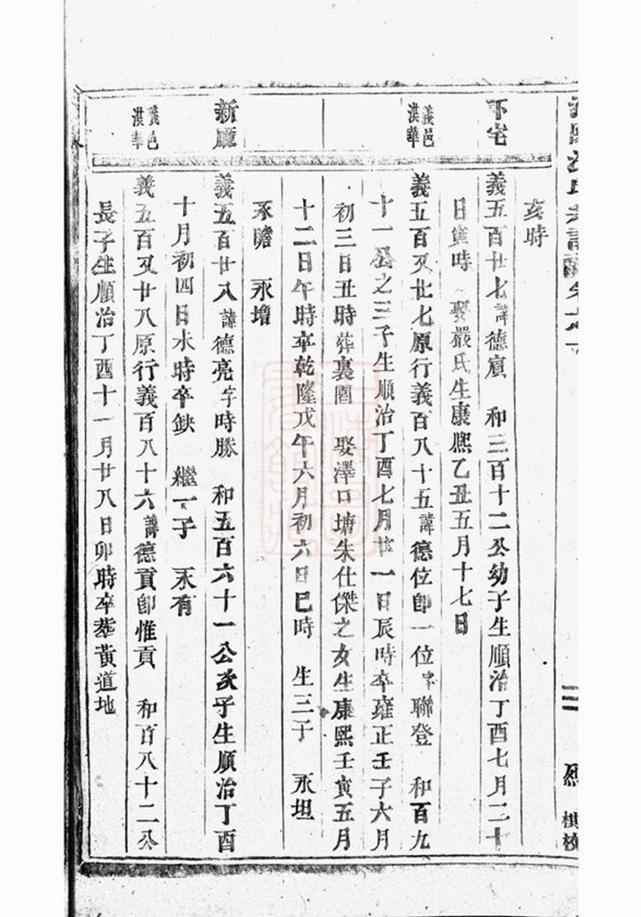 亥時
下宅
義五百廿七諱德廣 和三百十二公幼子生順治丁酉七月二十
日寅時 娶嚴氏生康熙乙丑五月十七日
義邑
淇華
義五百又廿七原行義百八十五諱德位即一位字聯登 和百九
十一公之三子生順治丁酉七月廿一日辰時卒雍正壬子六月
初三日丑時葬裏園 娶澤口塘朱仕傑之女生康熙壬寅五月
十二日午時卒乾隆戊午六月初六日巳時 生三子 永坦
永瞻 永增
新廳
義五百廿八諱德亮字時勝 和五百六十一公次子生順治丁酉
十月初四日未時卒缺 繼一子 永有
義邑
淇華
義五百又廿八原行義百八十六諱德貢即惟貢 和百八十二公
長子生順治丁酉十一月廿八日卯時卒墓黃道地